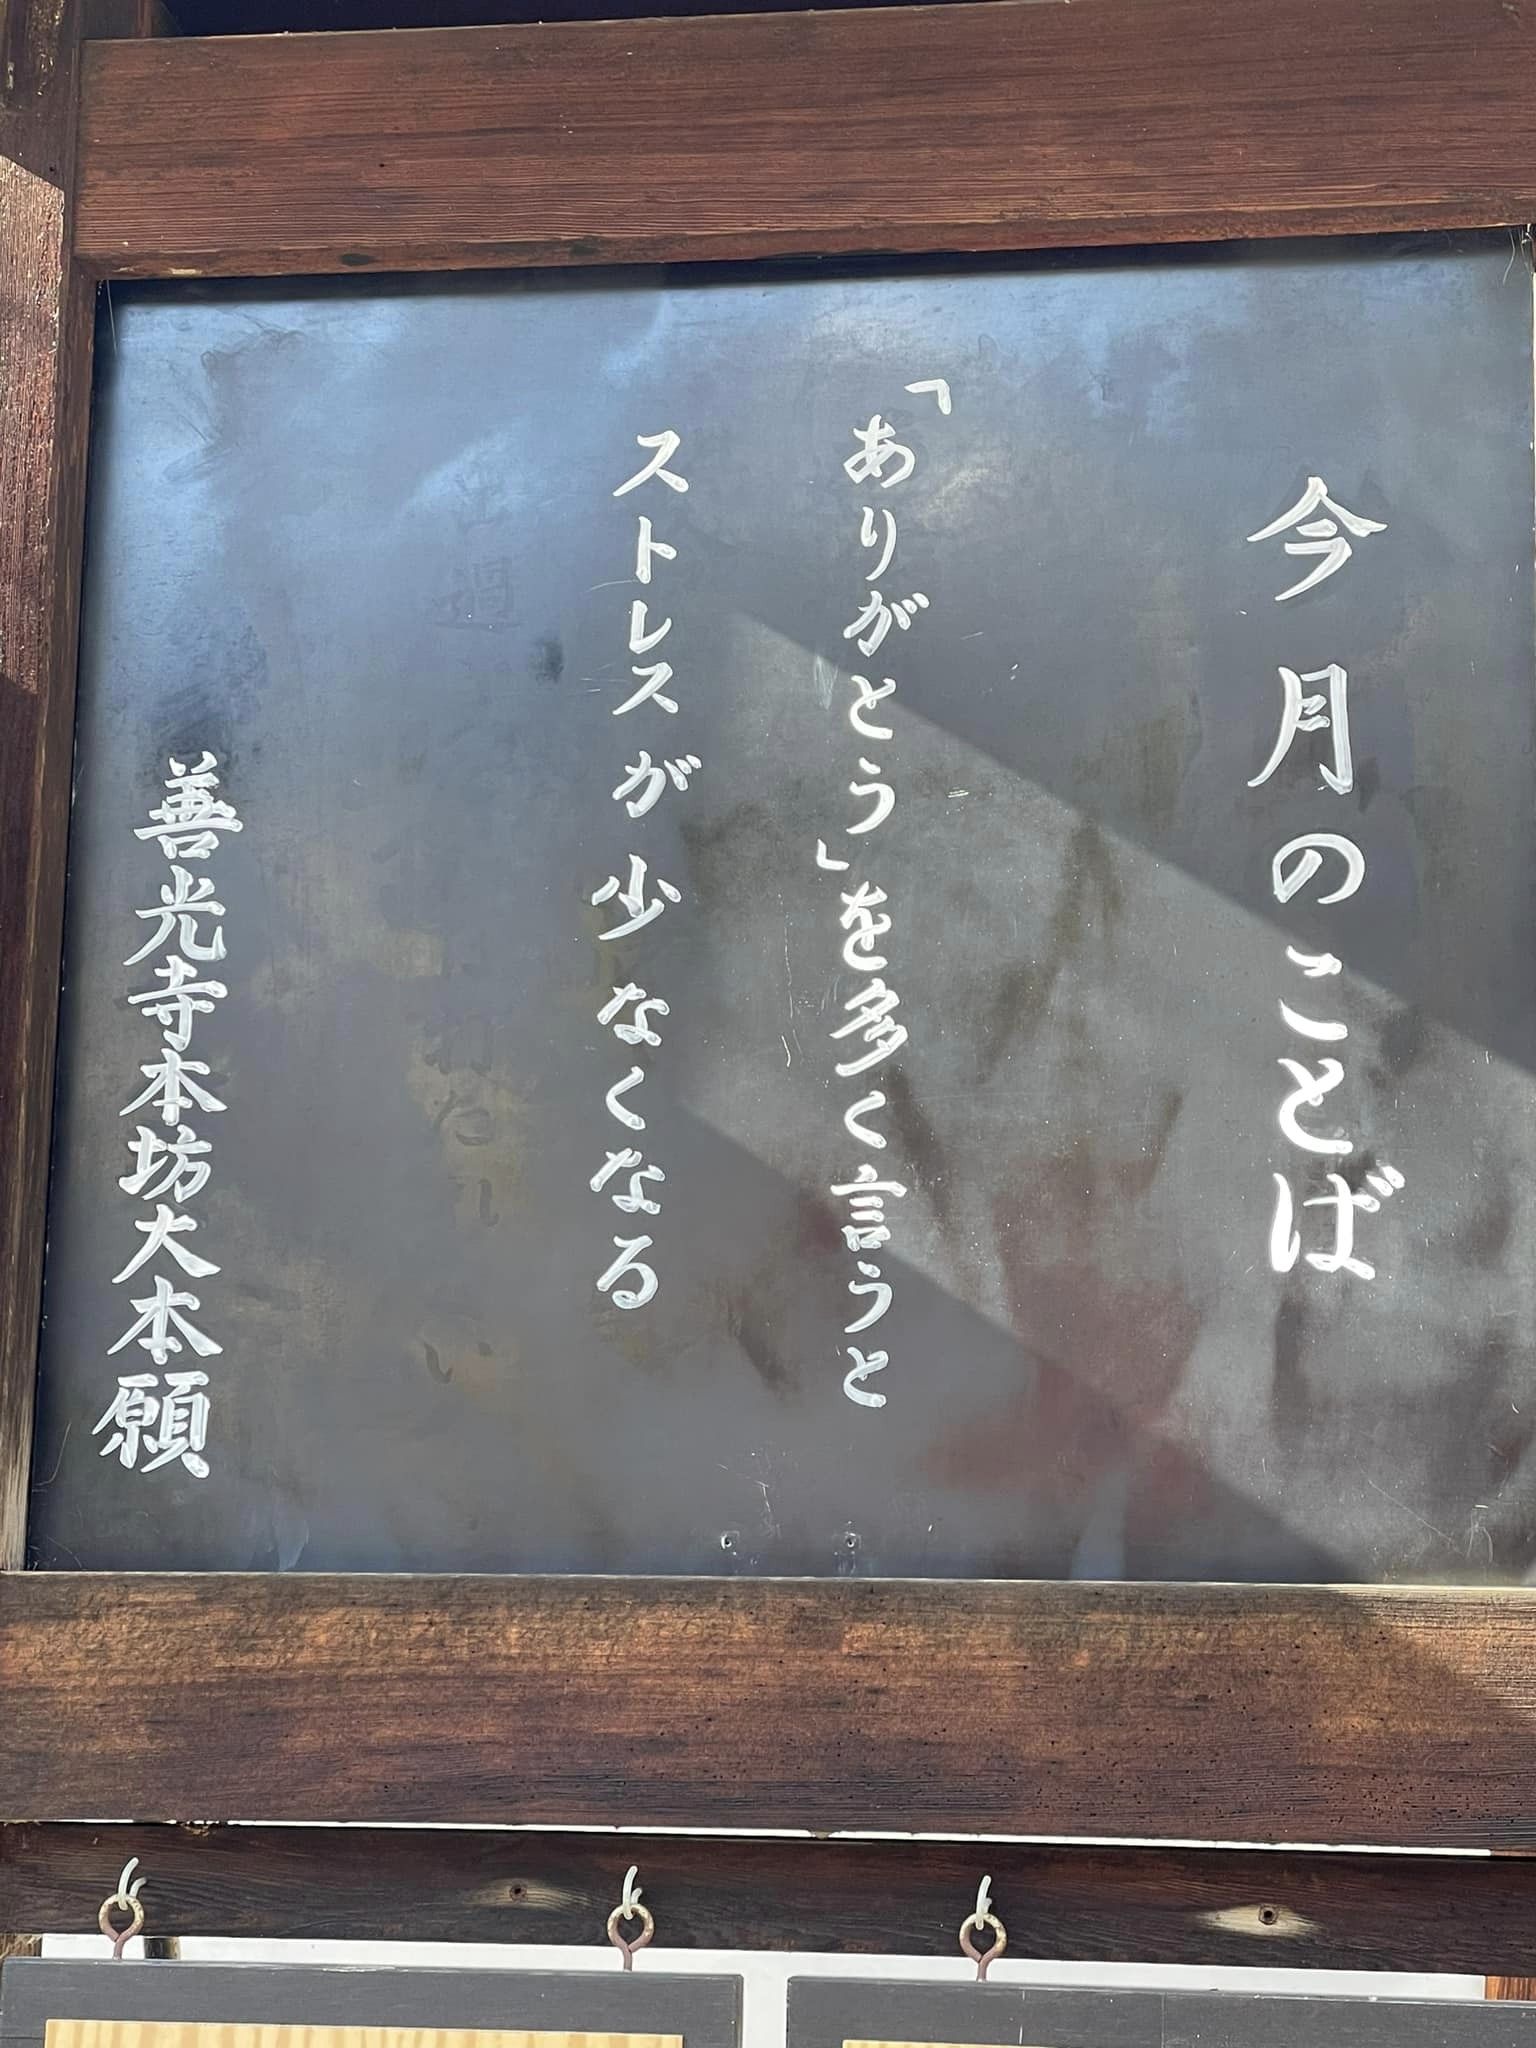 今月のことば
「ありがとう」を多く言うと
ストレスが少なくなる
善光寺本坊大本願